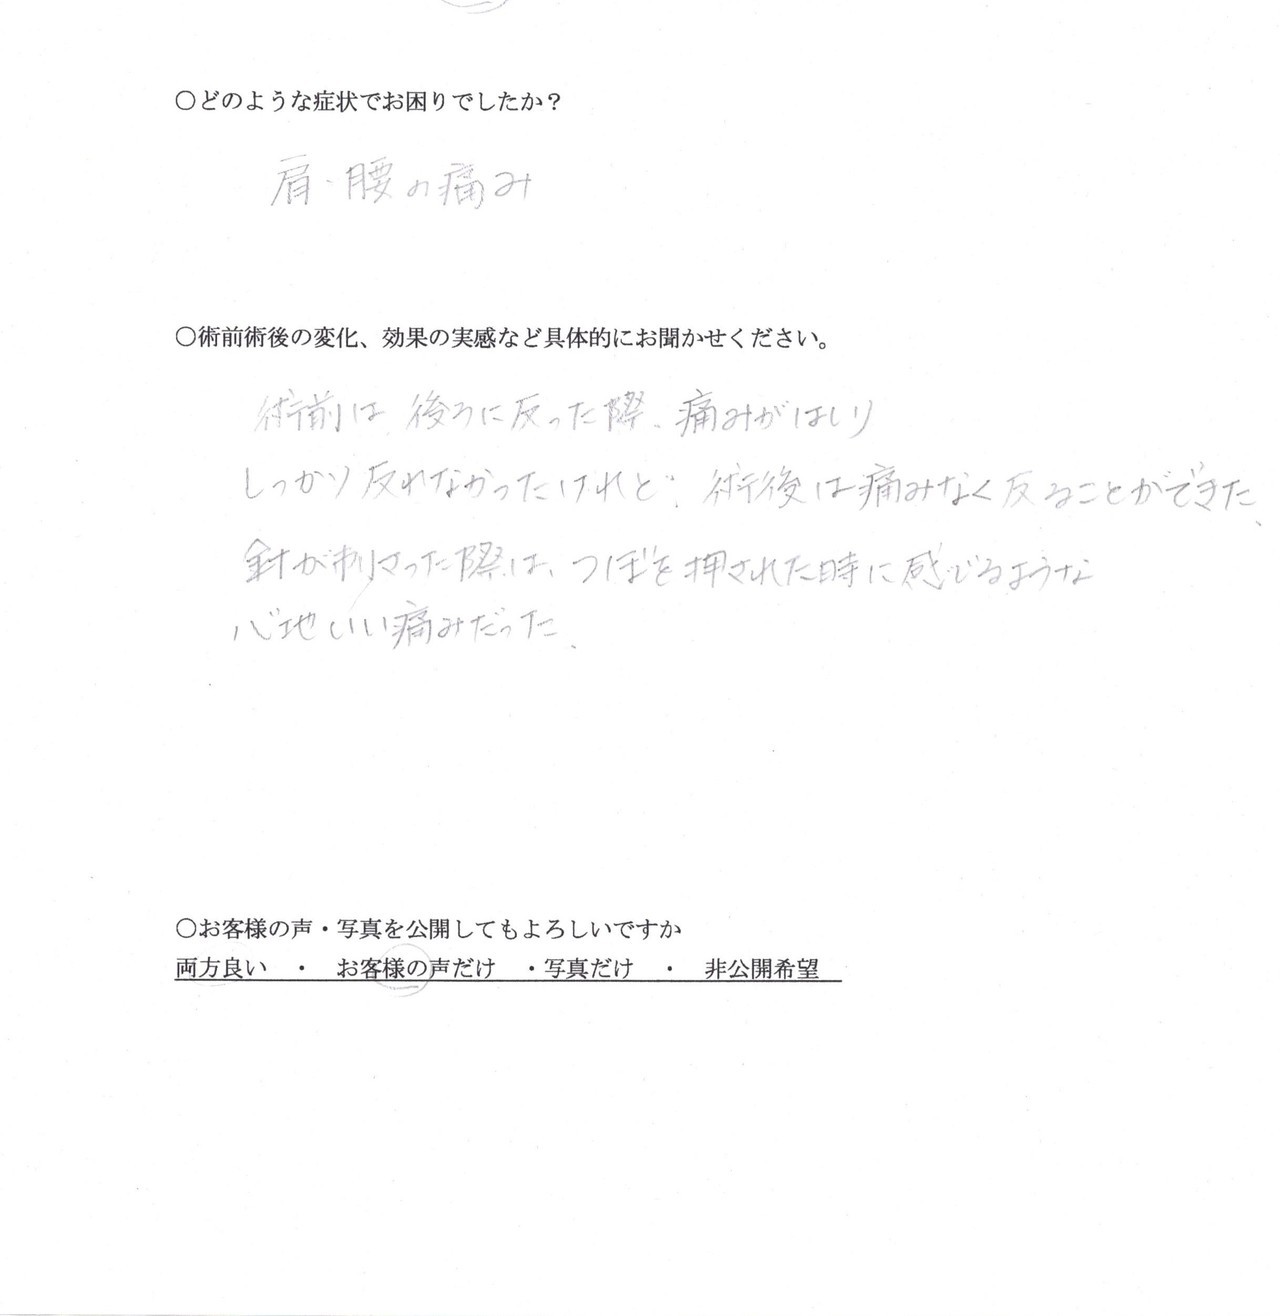 〇どのような症状でお困りでしたか？
肩・腰の痛み
〇術前術後の変化、効果の実感など具体的にお聞かせください。
術前は、後ろに反った際、痛みがはしり
しっかり反れなかったけれど、術後は痛みなく反ることができた、
針が刺さった際は、つぼを押された時に感じるような
心地いい痛みだった、
〇お客様の声・写真を公開してもよろしいですか
両方良い　・　お客様の声だけ　・写真だけ　・　非公開希望